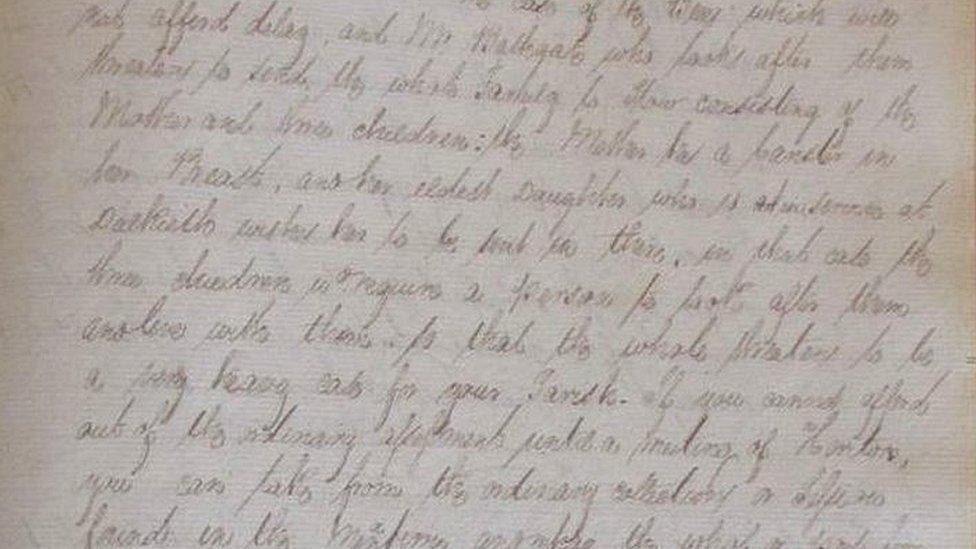 case of the Tiers which will
not afford delay, and Mr Bathgate who looks after them
threatens to send the whole Family to Stow consisting of the
Mother and three children: the Mother has a Cancer in
her Breast, and her eldest Daughter who is at service at
Dalkeith wishes her to be sent in there, in that case the
three children wd require a Person to look after them
and live with them. So that the whole threatens to be
a very heavy case for your Parish. If you cannot afford
out of the ordinary assessment until a meeting of Heritors,
you can take from the ordinary collections or
funds in the meantime